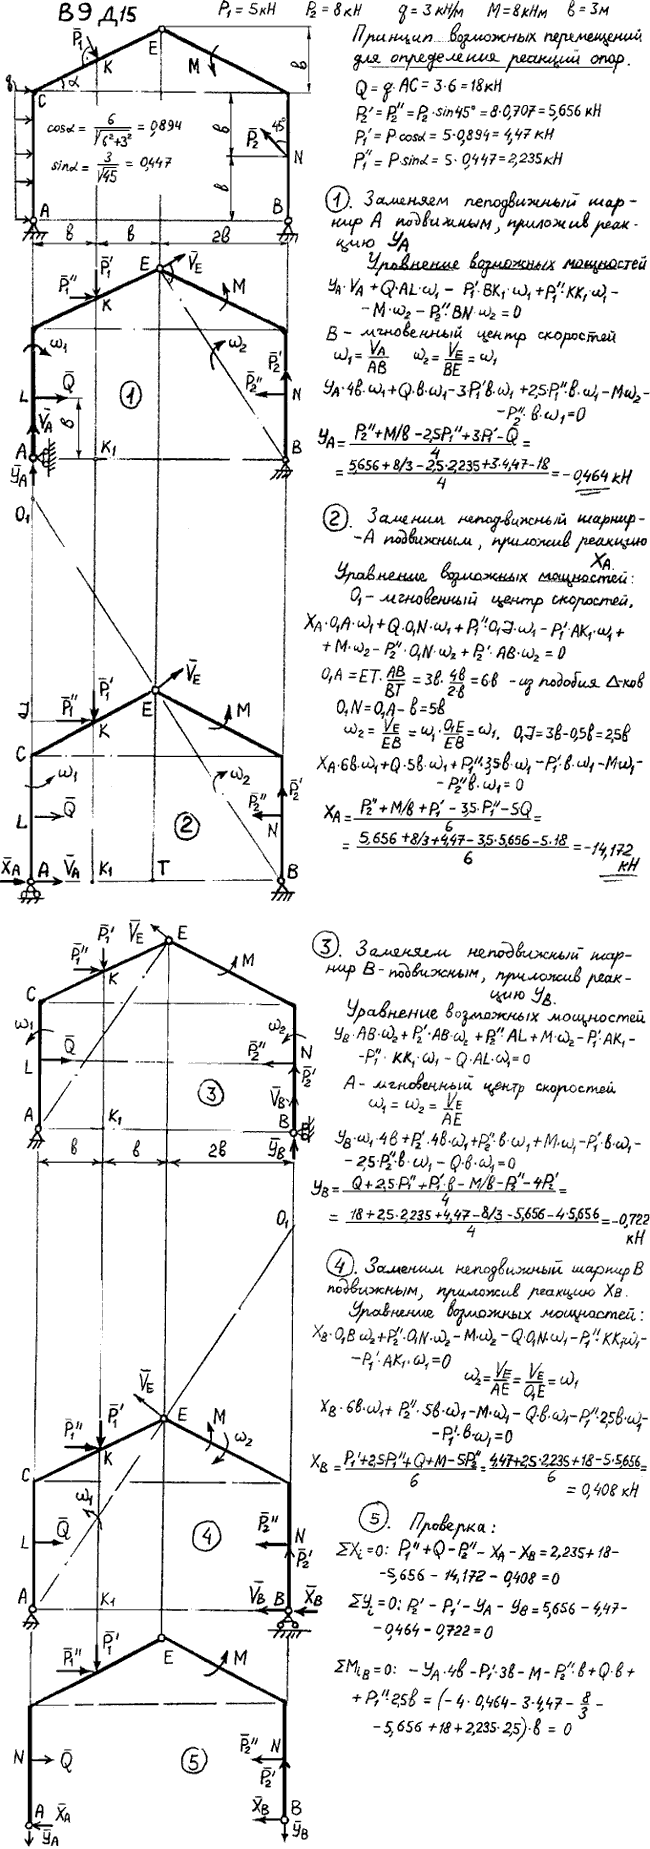 В9 Д15 P₁ = 5кН P₂ = 8кН q = 3 кН/м M = 8кНм в = 3м
Принцип возможных перемещений
для определения реакций опор.
Q = q·AC = 3·6 = 18кН
P₂' = P₂'' = P₂·sin45° = 8·0,707 = 5,656 кН
P₁' = P cosα = 5·0,894 = 4,47 кН
P₁'' = P sinα = 5·0,447 = 2,235 кН
cosα = 6/√(6²+3²) = 0,894
sinα = 3/√45 = 0,447
P̄₁ E K M C α q P̄₂ 45° N A B
в в 2в в в в
① . Заменяем неподвижный шар-
нир А подвижным, приложив реак-
цию Y_A
Уравнение возможных мощностей
Y_A·V_A + Q·AL·ω₁ – P₁'·BK₁·ω₁ + P₁''·KK₁·ω₁ –
– M·ω₂ – P₂''·BN·ω₂ = 0
В – мгновенный центр скоростей
ω₁ = V_A/AB ω₂ = V_E/BE = ω₁
Y_A·4в·ω₁ + Q·в·ω₁ – 3P₁'в·ω₁ + 2,5·P₁''·в·ω₁ – Mω₂ –
– P₂''·в·ω₁ = 0
Y_A = (P₂'' + M/в – 2,5P₁'' + 3P₁' – Q)/4 =
= (5,656 + 8/3 – 2,5·2,235 + 3·4,47 – 18)/4 = – 0,464 кН
P̄₁'' P̄₁' E V̄_E K M ω₁ ω₂ P̄₂' P̄₂'' Q̄ L N V̄_A в A K₁ B Ȳ_A ①
② . Заменим неподвижный шарнир-
-А подвижным, приложив реакцию
X_A.
Уравнение возможных мощностей:
O₁ – мгновенный центр скоростей.
X_A·O₁A·ω₁ + Q·O₁N·ω₁ + P₁''·O₁J·ω₁ – P₁'·AK₁·ω₁ +
+ M·ω₂ – P₂''·O₁N·ω₂ + P₂'·AB·ω₂ = 0
O₁A = ET·AB/BT = 3в·4в/2в = 6в – из подобия Δ-ков
O₁N = O₁A – в = 5в
ω₂ = V_E/EB = ω₁·O₁E/EB = ω₁. O₁J = 3в – 0,5в = 2,5в
X_A·6в·ω₁ + Q·5в·ω₁ + P₁''·3,5в·ω₁ – P₁'·в·ω₁ – Mω₁ –
– P₂''в·ω₁ = 0
X_A = (P₂'' + M/в + P₁' – 3,5·P₁'' – 5Q)/6 =
= (5,656 + 8/3 + 4,47 – 3,5·5,656 – 5·18)/6 = – 14,172
кН
O₁ V̄_E J P̄₁'' P̄₁' E M K C ω₁ ω₂ P̄₂' P̄₂'' Q̄ L N X̄_A A V̄_A K₁ T B ②
③ . Заменяем неподвижный шар-
нир В – подвижным, приложив реак-
цию Y_B.
Уравнение возможных мощностей
Y_B·AB·ω₂ + P₂'·AB·ω₂ + P₂''·AL + M·ω₂ – P₁'·AK₁ –
– P₁''·KK₁·ω₁ – Q·AL·ω₁ = 0
А – мгновенный центр скоростей
ω₁ = ω₂ = V_E/AE
Y_B·ω₁·4в + P₂'·4в·ω₁ + P₂''·в·ω₁ + M·ω₁ – P₁'·в·ω₁ –
– 2,5·P₂''·в·ω₁ – Q·в·ω₁ = 0
Y_B = (Q + 2,5·P₁'' + P₁'·в – M/в – P₂'' – 4P₂')/4 =
= (18 + 2,5·2,235 + 4,47 – 8/3 – 5,656 – 4·5,656)/4 = – 0,722
кН
V̄_E E P̄₁'' P̄₁' K M C ω₁ ω₂ Q̄ L P̄₂'' N P̄₂' V̄_B A K₁ B Ȳ_B ③
в в 2в
④ . Заменим неподвижный шарнир В
подвижным, приложив реакцию X_B.
Уравнение возможных мощностей:
X_B·O₁B·ω₂ + P₂''·O₁N·ω₂ – M·ω₂ – Q·O₁N·ω₁ – P₁''·KK₁·ω₁ –
– P₁'·AK₁·ω₁ = 0
ω₂ = V_E/AE = V_E/O₁E = ω₁
X_B·6в·ω₁ + P₂''·5в·ω₁ – M·ω₁ – Q·в·ω₁ – P₁''·2,5в·ω₁ –
– P₁'·в·ω₁ = 0
X_B = (P₁' + 2,5P₁'' + Q + M – 5P₂'')/6 = (4,47 + 2,5·2,235 + 18 – 5·5,656)/6 =
= 0,408 кН
O₁ V̄_E E P̄₁'' P̄₁' K M ω₂ C ω₁ Q̄ L P̄₂'' N P̄₂' A K₁ V̄_B B X̄_B ④
⑤ . Проверка:
ΣX_i = 0: P₁'' + Q – P₂'' – X_A – X_B = 2,235 + 18 –
– 5,656 – 14,172 – 0,408 = 0
ΣY_i = 0: P₂' – P₁' – Y_A – Y_B = 5,656 – 4,47 –
– 0,464 – 0,722 = 0
ΣM_iB = 0: – Y_A·4в – P₁'·3в – M – P₂''·в + Q·в +
+ P₁''·2,5в = (– 4·0,464 – 3·4,47 – 8/3 –
– 5,656 + 18 + 2,235·2,5)·в = 0
P̄₁'' P̄₁' E M N Q̄ P̄₂'' N P̄₂' A X̄_A Ȳ_A X̄_B B Ȳ_B ⑤